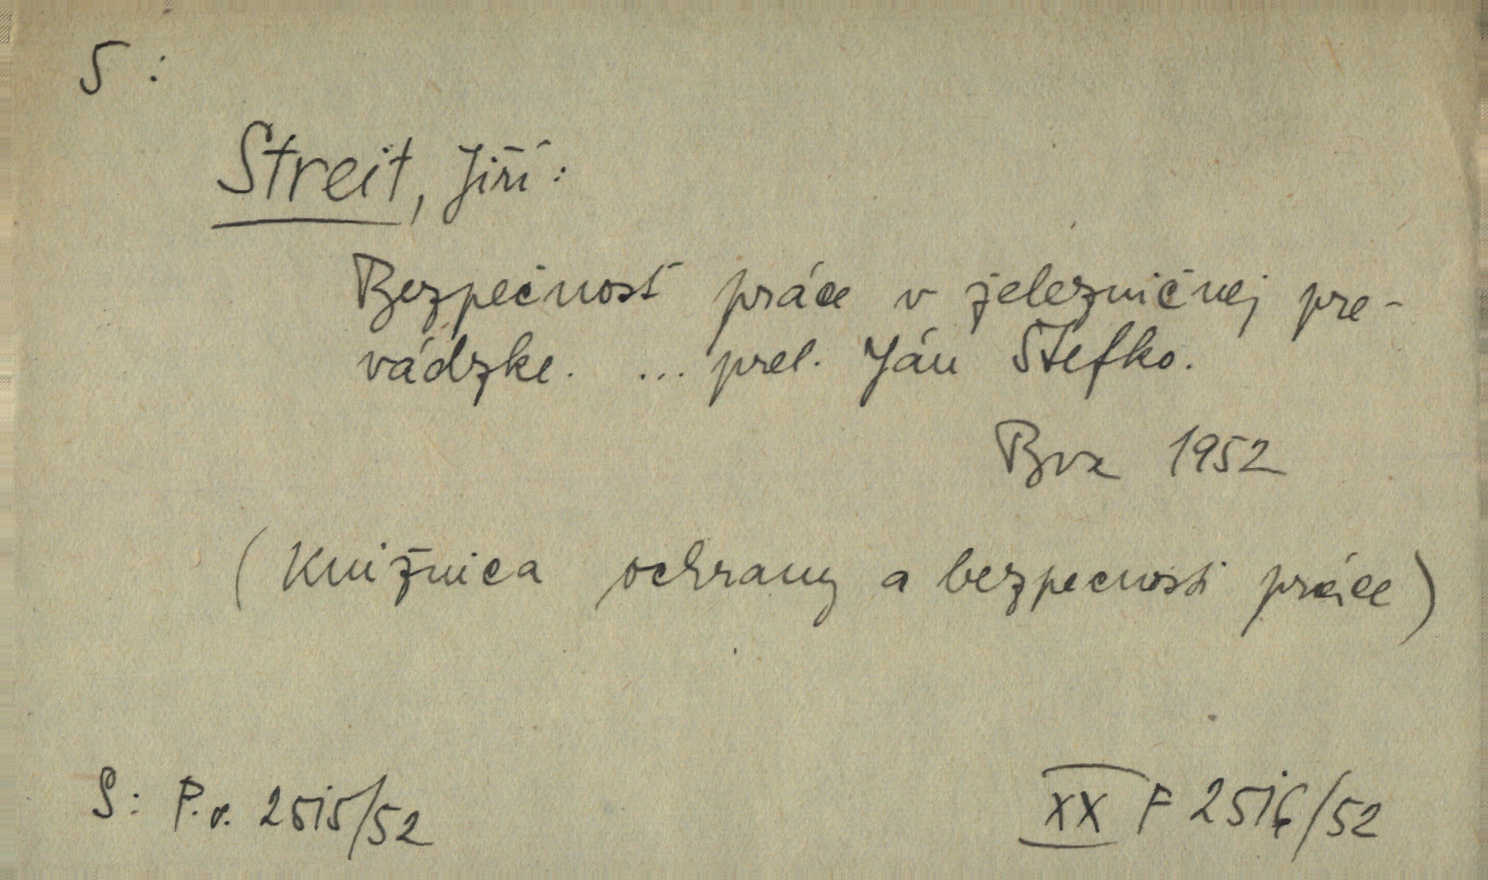 S:
Streit, Jiří:
Bezpečnosť práce v železničnej pre-
vádzke. ... prel. Ján Štefko.
Bva 1952
(Knižnica ochrany a bezpecnosti práce)
S: P.v. 2515/52
XX F 2516/52